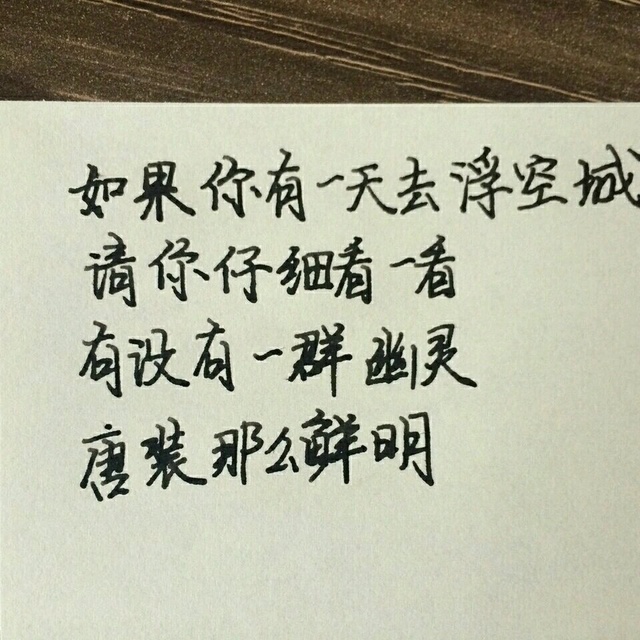 如果你有一天去浮空城
请你仔细看一看
有没有一群幽灵
唐装那么鲜明